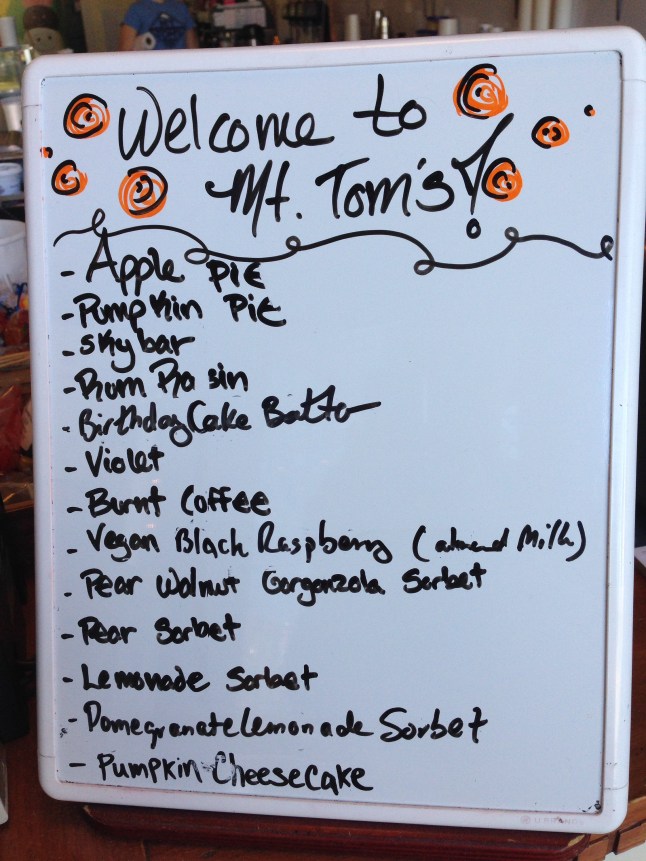 Welcome to
Mt. Tom's!
- Apple Pie
- Pumpkin Pie
- Skybar
- Rum Raisin
- Birthday Cake Batter
- Violet
- Burnt Coffee
- Vegan Black Raspberry (almond Milk)
- Pear Walnut Gorgonzola Sorbet
- Pear Sorbet
- Lemonade Sorbet
- Pomegranate Lemonade Sorbet
- Pumpkin Cheesecake